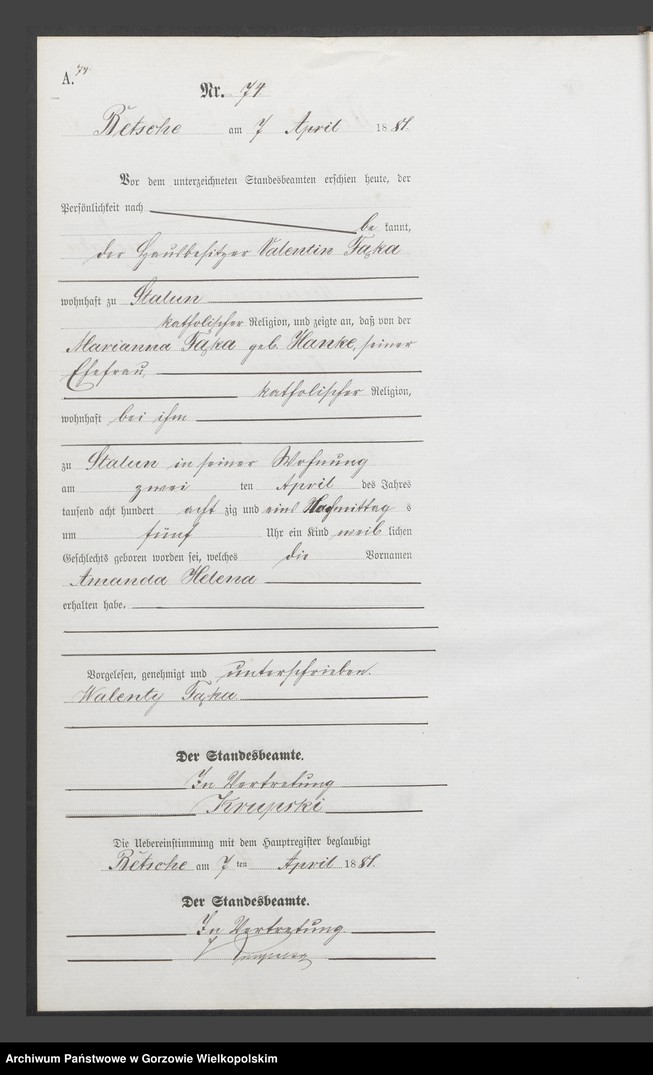 A. 74.
Nr. 74
Betsche am 7 April 1881.
Vor dem unterzeichneten Standesbeamten erschien heute, der
Persönlichkeit nach
be kannt,
der Hausbesitzer Valentin Fąka
wohnhaft zu Stalun
katholischer Religion, und zeigte an, daß von der
Marianna Fąka geb. Hanke, seiner
Ehefrau,
katholischer Religion,
wohnhaft bei ihm
zu Stalun in seiner Wohnung
am zwei ten April des Jahres
tausend acht hundert acht zig und eins Nachmittag s
um fünf Uhr ein Kind weib lichen
Geschlechts geboren worden sei, welches die Vornamen
Amanda Helena
erhalten habe.
Vorgelesen, genehmigt und unterschrieben.
Walenty Fąka
Der Standesbeamte.
In Vertretung
Krupski
Die Uebereinstimmung mit dem Hauptregister beglaubigt
Betsche am 7 ten April 1881.
Der Standesbeamte.
In Vertretung
Archiwum Państwowe w Gorzowie Wielkopolskim